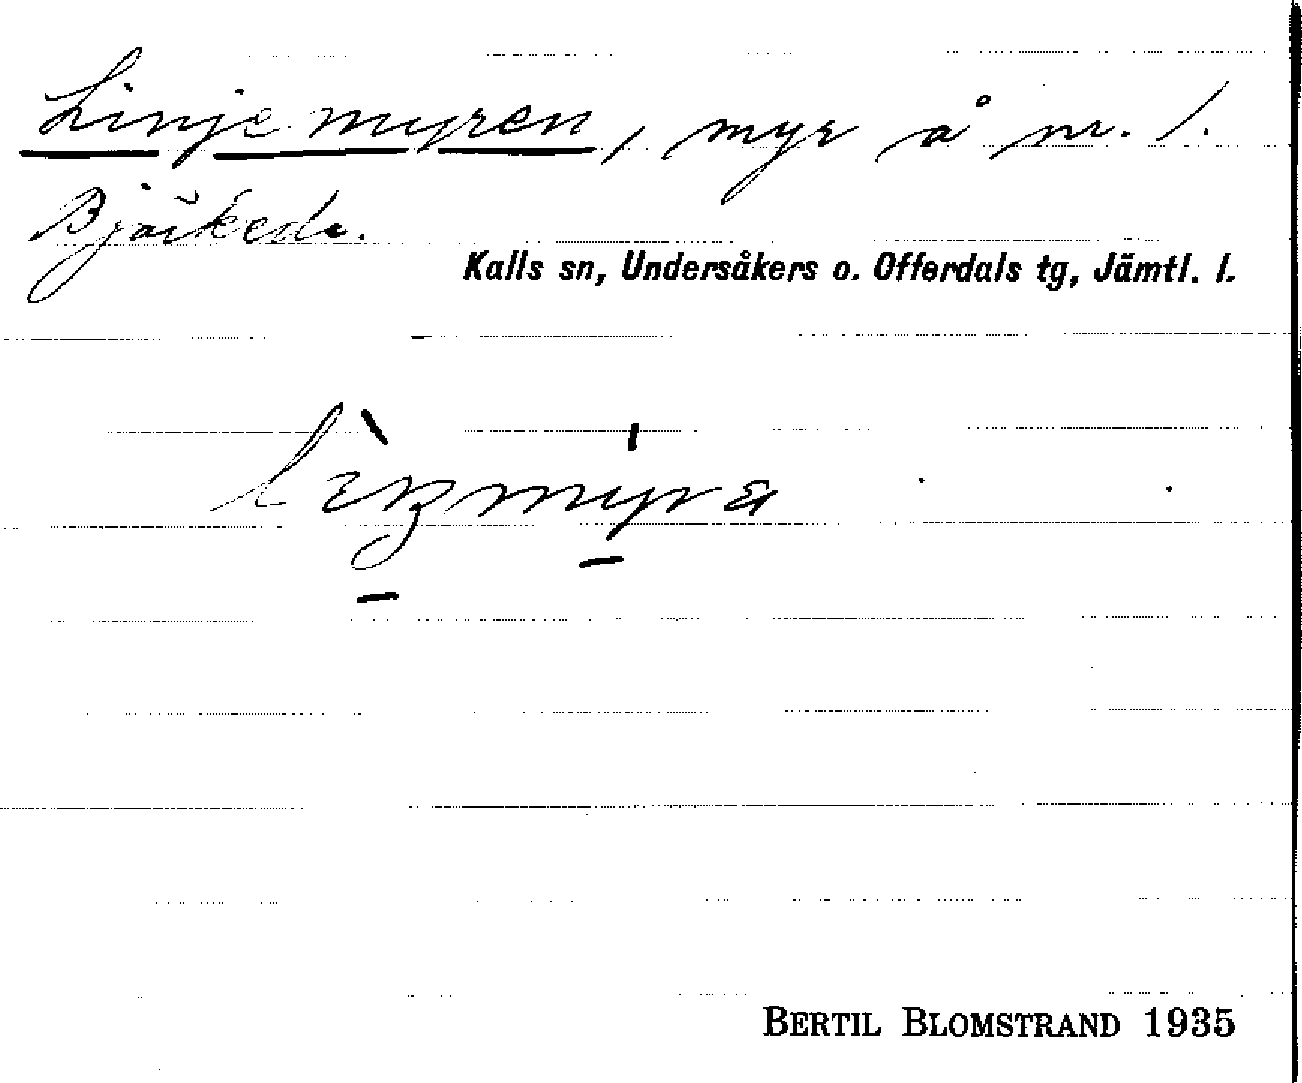 Linjemyren, myr å nr. 1.
Björkede.
Kalls sn, Undersåkers o. Offerdals tg, Jämtl. l.
BERTIL BLOMSTRAND 1935